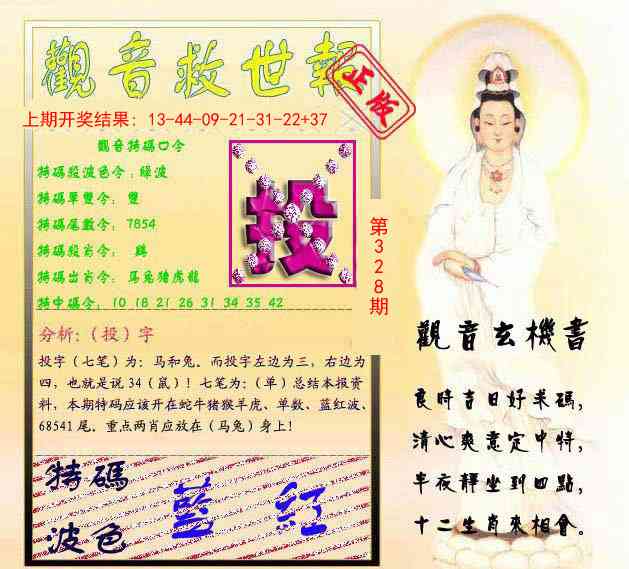 觀音救世報
正版
上期开奖结果：13-44-09-21-31-22+37
觀音特碼口令
特碼殺波色令：綠波
特碼單雙令： 雙
特碼尾數令： 7854
特碼殺肖令： 鷄
特碼出肖令： 馬兔猪虎龍
特中碼令： 10 18 21 26 31 34 35 42
投
第328期
分析:（投）字
投字（七笔）为: 马和兔. 而投字左边为三, 右边为
四, 也就是说 34（鼠）! 七笔为:（单）总结本报资
料, 本期特码应该开在蛇牛猪猴羊虎、单数、蓝红波、
68541 尾. 重点两肖应放在（马兔）身上!
特碼
波色
藍 紅
觀音玄機書
良時吉日好米碼,
清心爽意定中特,
半夜靜坐到四點,
十二生肖來相會。